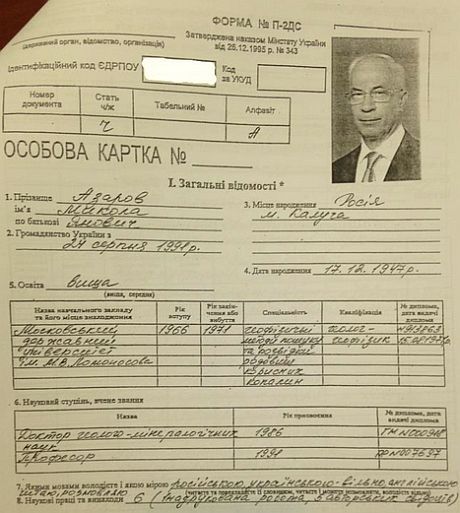 ФОРМА № П-2ДС
Затверджена наказом Мінстату України
від 26.12.1995 р. № 343
(державний орган, відомство, організація)
Ідентифікаційний код ЄДРПОУ
Код
за УКУД
Номер документа
Стать ч/ж
Табельний №
Алфавіт
Ч
А
ОСОБОВА КАРТКА №
І. Загальні відомості *
1. Прізвище Азаров
ім'я Микола
по батькові Янович
2. Громадянство України з
24 серпня 1991 р.
3. Місце народження Росія
м. Калуга
4. Дата народження 17.12.1947 р.
5. Освіта Вища
(вища, середня)
Назва навчального закладу та його місце знаходження
Рік вступу
Рік закінчення або вибуття
Спеціальність
Кваліфікація
№ диплома, дата видачі диплома
Московський державний університет ім. М.В. Ломоносова
1966
1971
геофізичні методи пошуку та розвідки родовищ корисних копалин
геолог-геофізик
6. Науковий ступінь, вчене звання
Назва
Рік присвоєння
№ диплома, дата видачі диплома
Доктор геолого-мінералогічних наук
1986
Професор
1991
7. Якими мовами володієте і якою мірою російською, українською - вільно, англійською
читаю, розмовляю
(читаєте та перекладаєте із словником, читаєте і можете розмовляти, володієте вільно)
8. Наукові праці та винаходи